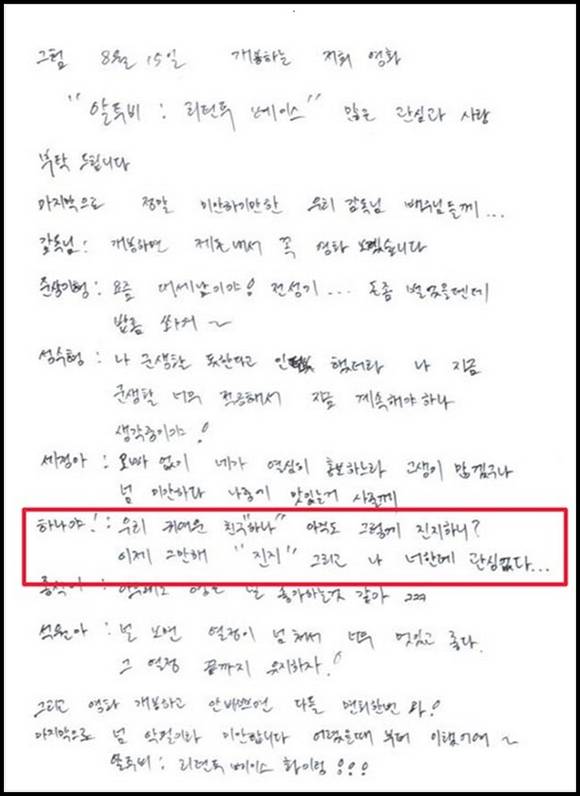 그럼 8월 15일 개봉하는 저희 영화
"알투비 : 리턴투 베이스" 많은 관심과 사랑
부탁 드립니다
마지막으로 정말 미안하기만한 우리 감독님 배우님들께...
감독님: 개봉하면 제돈내서 꼭 영화 보겠습니다
준상이형: 요즘 대세남이야! 전성기... 돈좀 벌었을텐데
밥좀 쏴여~
성수형: 나 군생활 못한다고 했더라 나 지금
군생활 너무 적응해서 지금 계속해야 하나
생각중이야!
세정아: 오빠 없이 네가 열심히 홍보하느라 고생이 많겠구나
넘 미안하다 나중에 맛있는거 사줄께
하나야!: 우리 귀여운 친구"하나" 아직도 그렇게 진지하니?
이제 그만해 "진지" 그리고 나 너한테 관심없다...
종석이: 널
석원아: 널 보면 열정이 넘쳐서 너무 멋있고 좋다.
그 열정 끝까지 유지하자!
그리고 영화 개봉하고 안바쁘면 다들 면회한번 와!
마지막으로 넘 악필이라 미안합니다 어렸을때 부터 이랬어여~
알투비: 리턴투 베이스 화이팅!!!